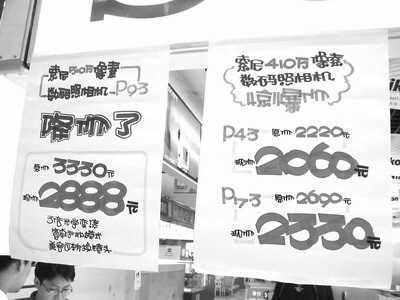 索尼510万像素
数码照相机 P93
降价了
原价3330元
现价2888元
3倍光学变焦
索尼410万像素
数码照相机
P43 原价2220元
现价2060元
P73 原价2690元
现价2330元